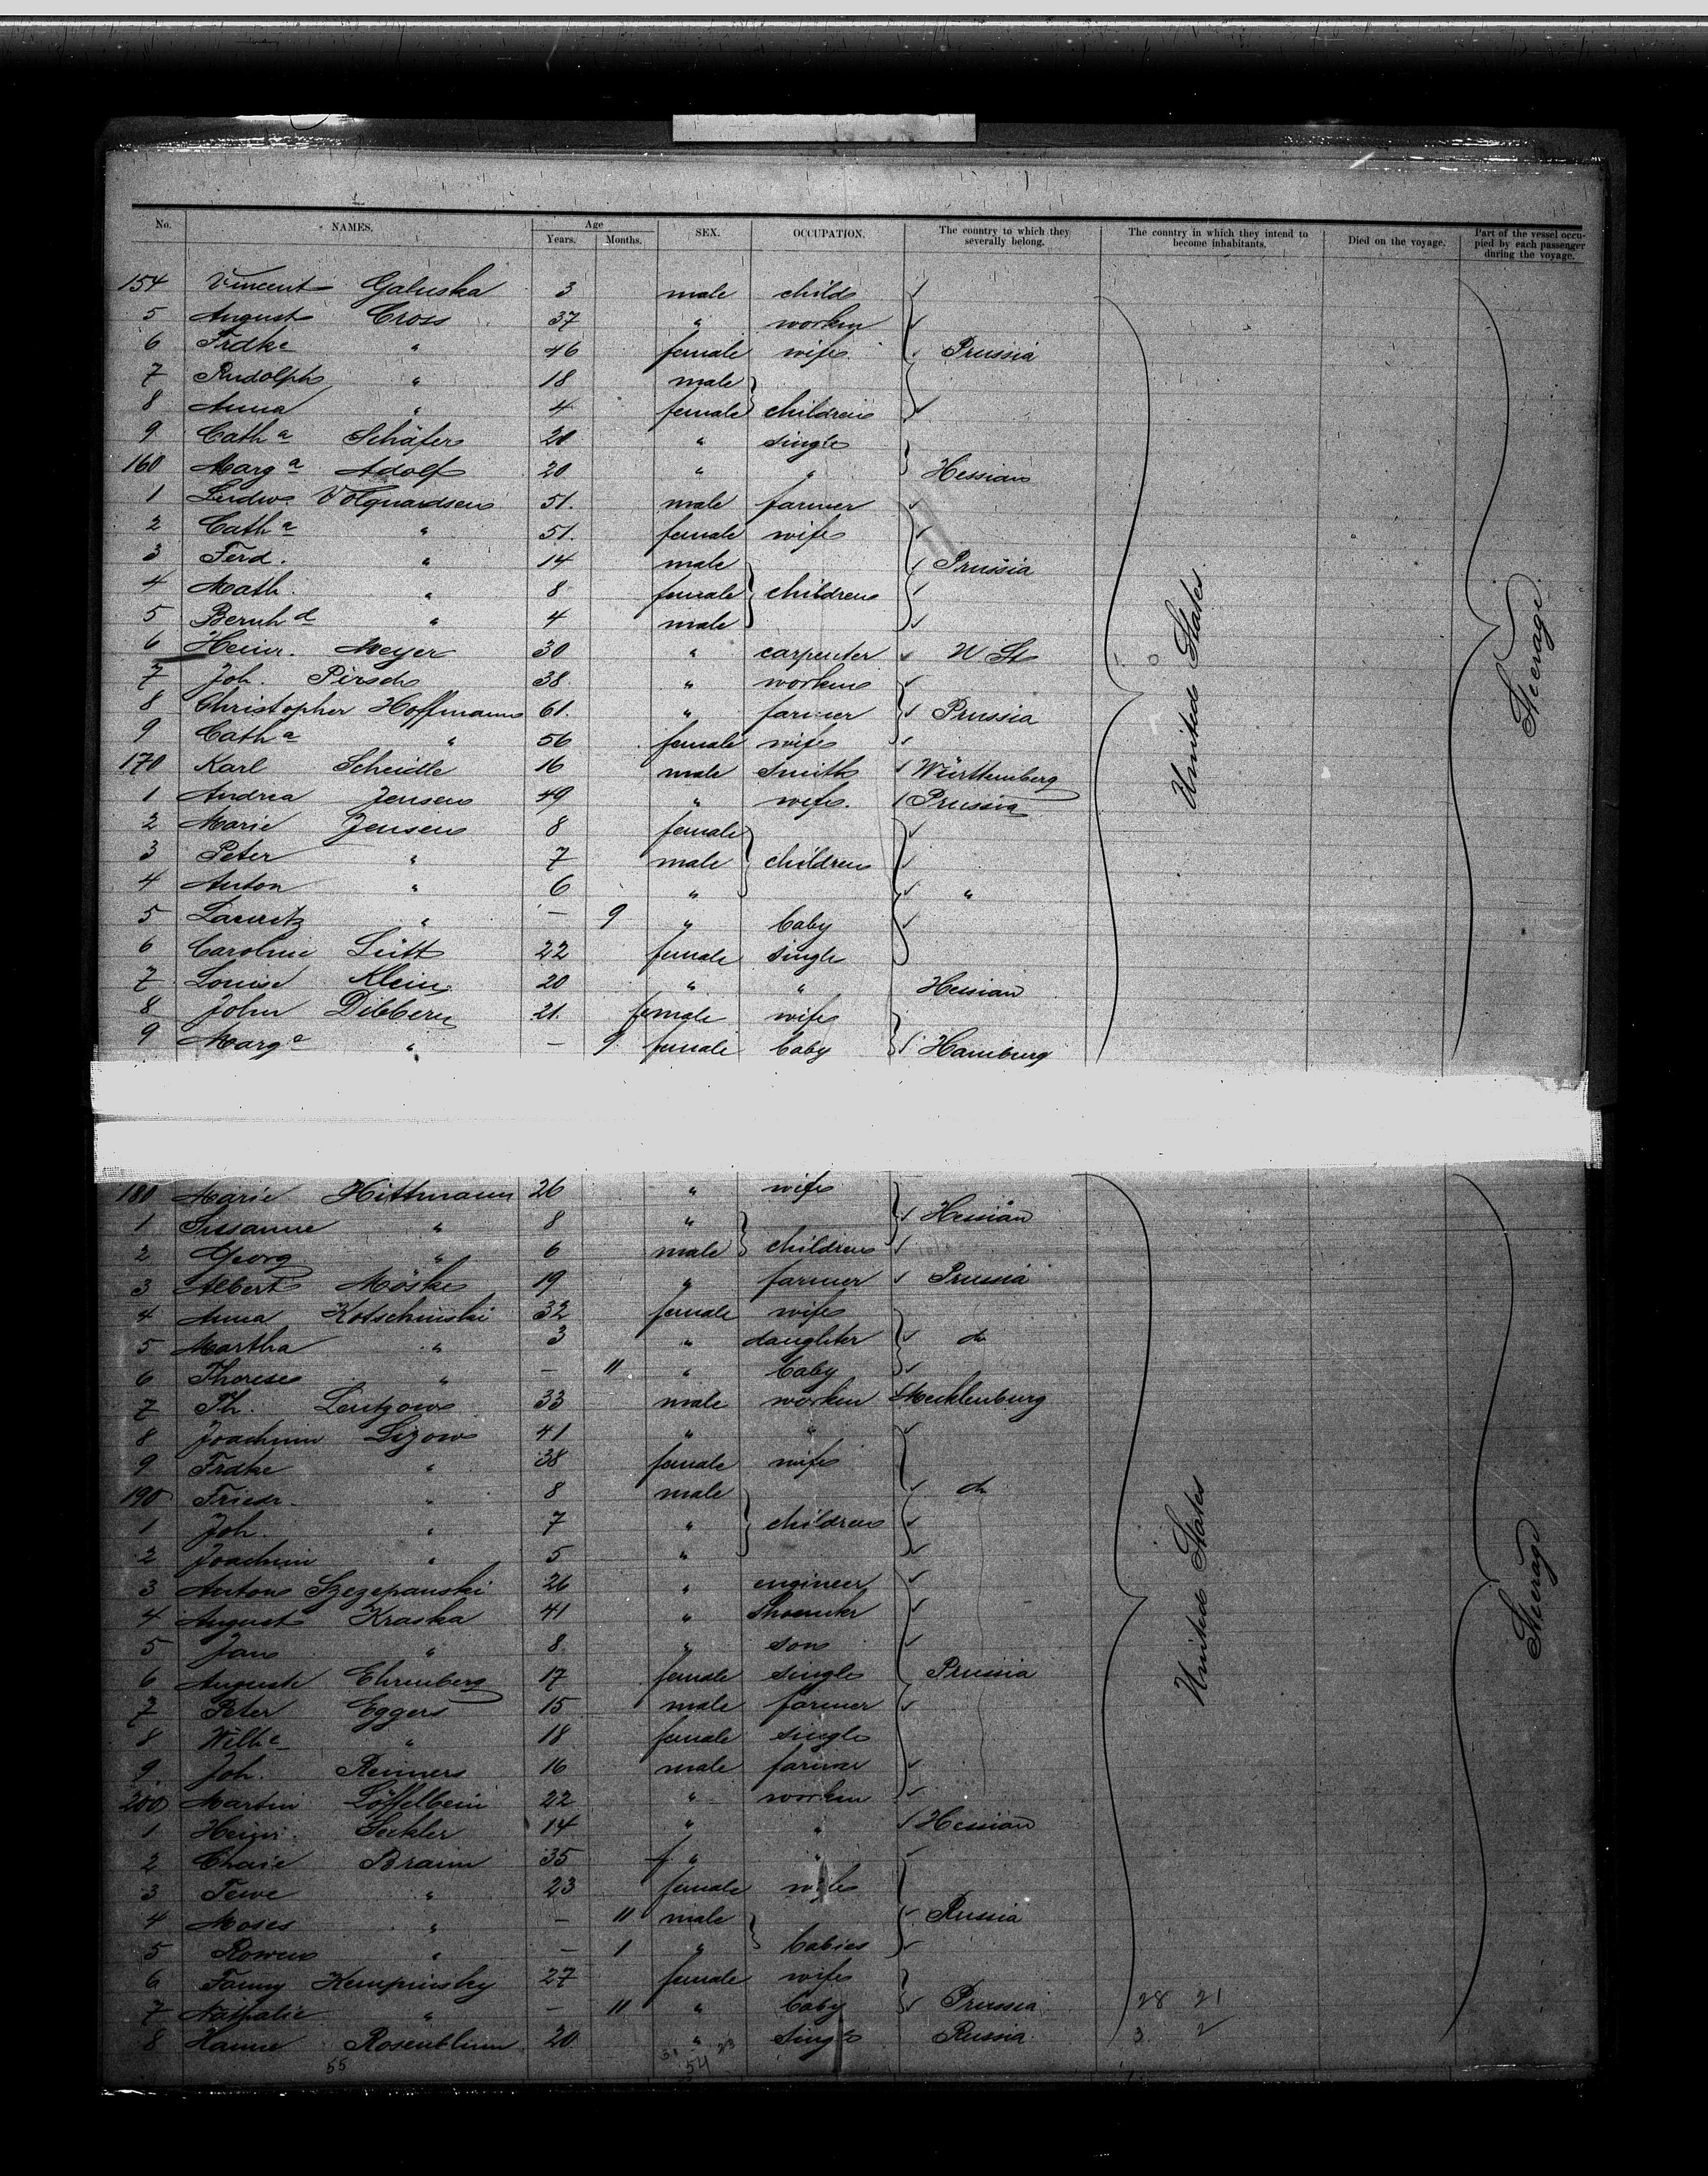 No. NAMES. Age Years. Months. SEX. OCCUPATION. The country to which they severally belong. The country in which they intend to become inhabitants. Died on the voyage. Part of the vessel occupied by each passenger during the voyage.
154 Vincent Galuska 3 male child
5 August Cross 37 " workm
6 Frdke " 46 female wife Prussia
7 Rudolph " 18 male
8 Anna " 4 female children
9 Cath a Schäfer 20 " single
160 Marg a Adolf 20 " " Hessian
1 Ludw Volquardsen 51. male farmer
2 Cath a " 51. female wife
3 Ferd. " 14 male Prussia
4 Math. " 8 female children
5 Bernh d " 4 male
6 Heinr. Meyer 30 " carpenter U St
7 Joh. Pirsch 38 " workm
8 Christopher Hoffmann 61. " farmer Prussia
9 Cath a " 56 female wife
170 Karl Scheidle 16 male smith Württemberg
1 Andrea Jensen 49 " wife. Prussia
2 Marie Jensen 8 female
3 Peter " 7 male children
4 Anton " 6 " "
5 Lauritz " — 9 " baby
6 Caroline Lütt 22 female single
7 Louise Klein 20 " " Hessian
8 John Dibbern 21. female wife
9 Marg a " — 9 female baby Hamburg
United States
Steerage
180 Marie Hittmann 26 " wife
1 Susanne " 8 " Hessian
2 Georg " 6 male children
3 Albert Möske 19 " farmer Prussia
4 Anna Kotschinski 32 female wife
5 Martha " 3 " daughter do
6 Therese " — 11 " baby
7 Th. Lentzow 33 male workm Mecklenburg
8 Joachim Lizow 41 " "
9 Frdke " 38 female wife
190 Friedr. " 8 male do
1 Joh. " 7 " children
2 Joachim " 5 "
3 Anton Szezepanski 26 " engineer
4 August Kraska 41 " Shoemkr
5 Jan " 8 " son
6 Auguste Ehrenberg 17 female single Prussia
7 Peter Eggers 15 male farmer
8 Wilh e " 18 female single
9 Joh. Reimers 16 male farmer
200 Martin Löffelbein 22 " workm
1 Heinr. Seckler 14 " " Hessian
2 Chaie Braun 35 f " "
3 Tewe " 23 female wife
4 Moses " — 11 male Russia
5 Rowen " — 1 " babies
6 Fanny Kempinsky 27 female wife
7 Nathalie " — 11 " baby Prussia 28 21
8 Hanne Rosenblum 20. " single Russia 3. 2
55 31 23
54
United States
Steerage